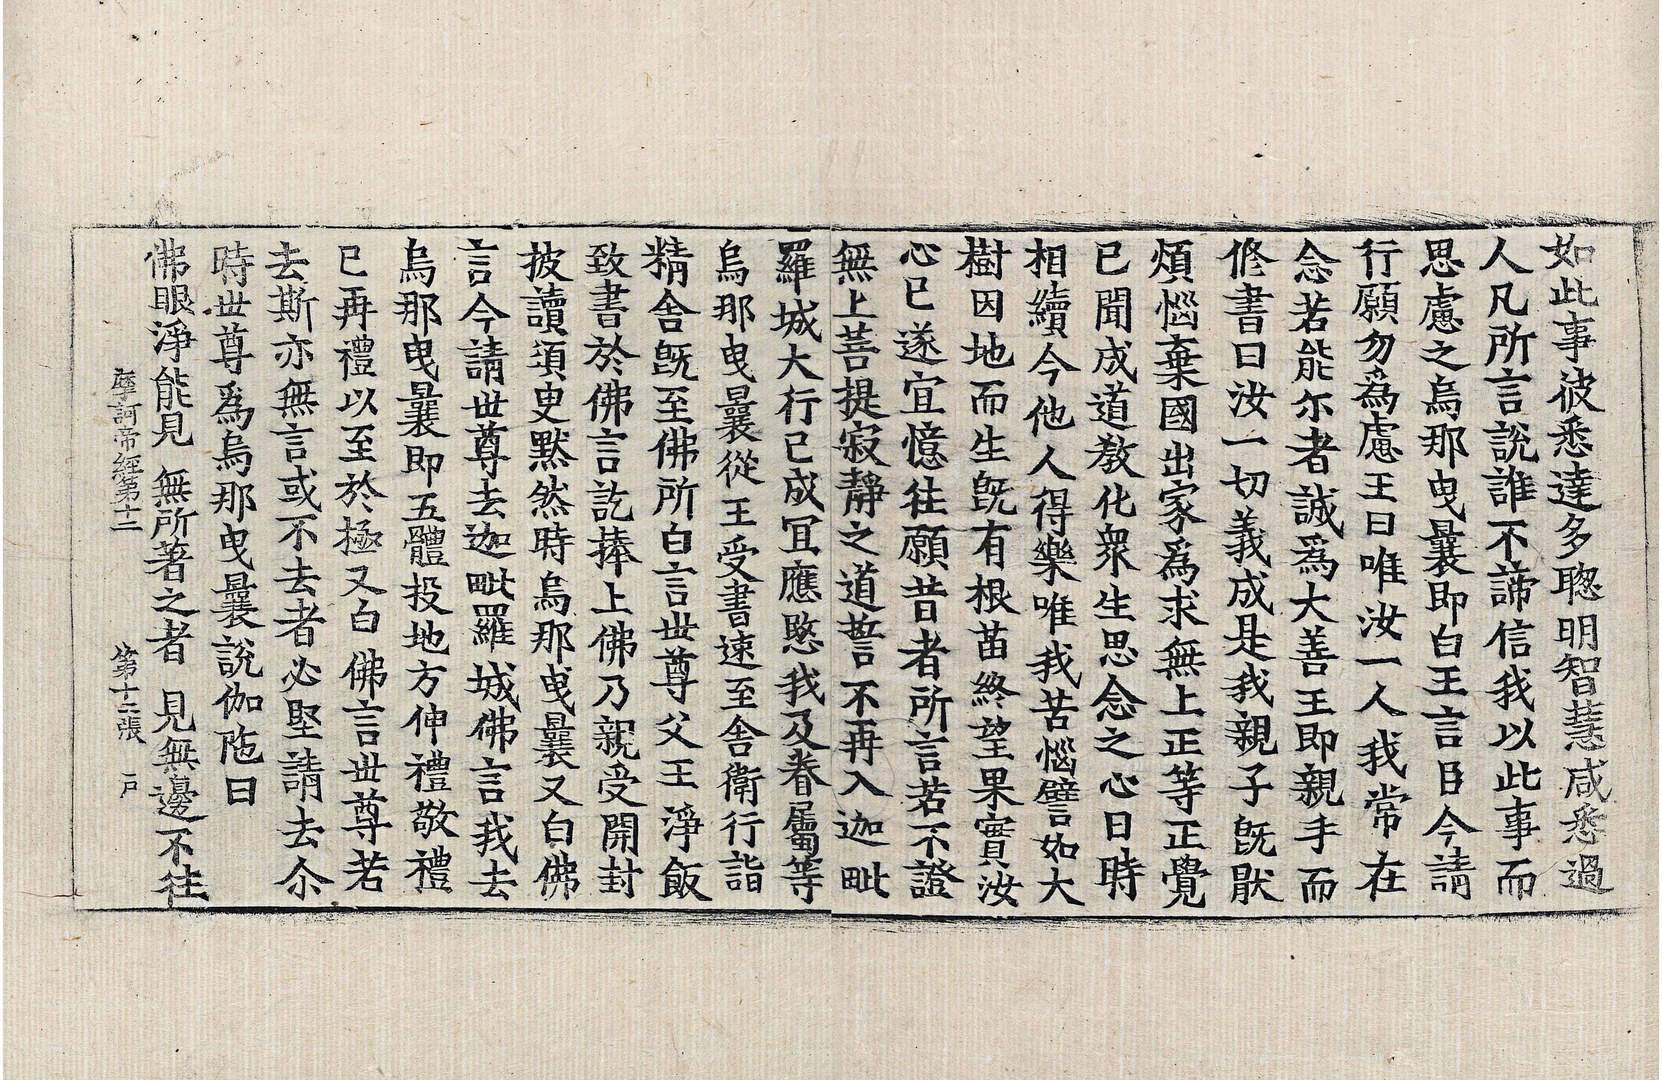 如此事彼悉達多聦明智慧咸悉過
人凡所言說誰不諦信我以此事而
思慮之烏那曳曩即白王言臣今請
行願勿為慮王曰唯汝一人我常在
念若能尒者誠爲大善王即親手而
修書曰汝一切義成是我親子旣猒
煩惱棄國出家爲求無上正等正覺
已聞成道敎化衆生思念之心日時
相續今他人得樂唯我苦惱譬如大
樹因地而生旣有根苗終望果實汝
心已遂宜憶往願昔者所言若不證
無上菩提寂靜之道誓不再入迦毗
羅城大行已成冝應愍我及眷屬等
烏那曳曩從王受書速至舍衛行詣
精舍旣至佛所白言丗尊父王淨飯
致書於佛言訖捧上佛乃親受開封
披讀湏臾默然時烏那曳曩又白佛
言今請丗尊去迦毗羅城佛言我去
烏那曳曩即五體投地方伸禮敬禮
已再禮以至於極又白佛言丗尊若
去斯亦無言或不去者必堅請去尒
時丗尊爲烏那曳曩說伽陁曰
佛眼淨能見 無所著之者 見無邊不往
摩訶帝經第十二 第十二張 戶